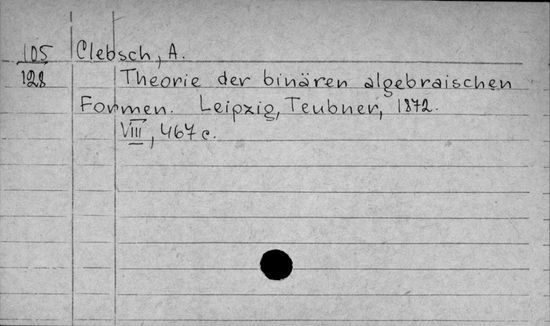 105 Clebsch, A.
128 Theorie der binären algebraischen
Formen. Leipzig, Teubner, 1872.
VIII, 467 c.